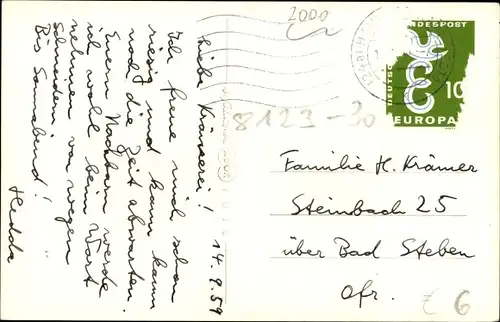 14.8.59
Liebe Krämerei!
Ich freue mich schon
riesig und kann kaum
noch die Zeit abwarten.
Euern Nachbarn werde
ich wohl beim Wort
nehmen von wegen
Schneiden!
Bis Sonnabend!
Hedda
2000
8123-30
DEUTSCHE BUNDESPOST
10
EUROPA
Familie H. Krämer
Steinbach 25
über Bad Steben
Ofr.
€ 6